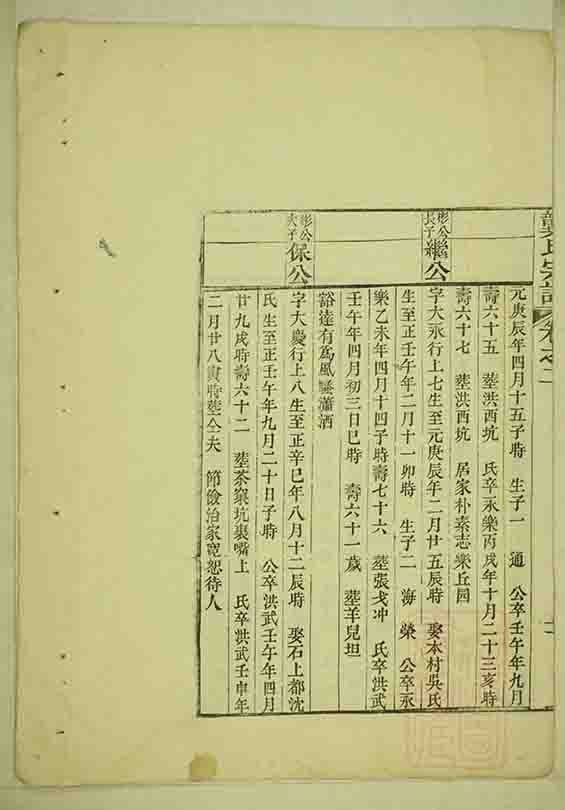 龔氏宗譜 卷之二
元庚辰年四月十五子時 生子一 通 公卒壬午年九月
壽六十五 塟洪西坑 氏卒永樂丙戌年十月二十三亥時
壽六十七 塟洪西坑 居家朴素志樂丘园
彬公長子 繼公
字大永行上七生至元庚辰年二月廿五辰時 娶本村吳氏
生至正壬午年二月十一卯時 生子二 海 榮 公卒永
樂乙未年四月十四子時壽七十六 塟張戈冲 氏卒洪武
壬午年四月初三日巳時 壽六十一歲 塟羊兒坦
豁達有爲風騷瀟洒
彬公次子 保公
字大慶行上八生至正辛巳年八月十二辰時 娶石上都沈
氏生至正壬午年九月二十日子時 公卒洪武壬午年四月
廿九戌時壽六十二 塟茶窠坑裏嘴上 氏卒洪武壬申年
二月廿八寅時塟仝夫 節儉治家寬恕待人